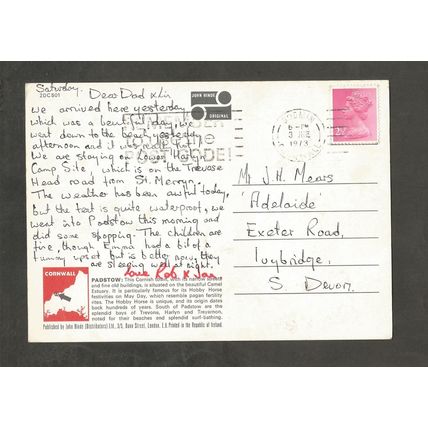 Saturday. Dear Dad & Lin
2DC601
we arrived here yesterday
which was a beautiful day, we
went down to the beach yesterday
afternoon and it was really hot.
We are staying on Lower Harlyn
Camp Site, which is on the Trevose
Head road from St. Merryn.
The weather has been awful today,
but the tent is quite waterproof, we
went into Padstow this morning and
did some shopping. The children are
fine, though Emma had a bit of a
tummy upset but is better now, they
are sleeping well at night.
love Rob x Jan
JOHN HINDE
ORIGINAL
REMEMBER
use the
POSTCODE!
BODMIN
6-PM
3 JUL
1973
CORNWALL
2½P
Mr J.H. Mears
'Adelaide'
Exeter Road,
Ivybridge,
S Devon.
CORNWALL
PADSTOW: This Cornish town, with its narrow streets
and fine old buildings, is situated on the beautiful Camel
Estuary. It is particularly famous for its Hobby Horse
festivities on May Day, which resemble pagan fertility
rites. The Hobby Horse is unique, and its origin dates
back hundreds of years. South of Padstow are the
splendid bays of Trevone, Harlyn and Treyarnon,
noted for their beaches and splendid surf-bathing.
Published by John Hinde (Distributors) Ltd., Dane Street, London, Printed in the Republic of Ireland.